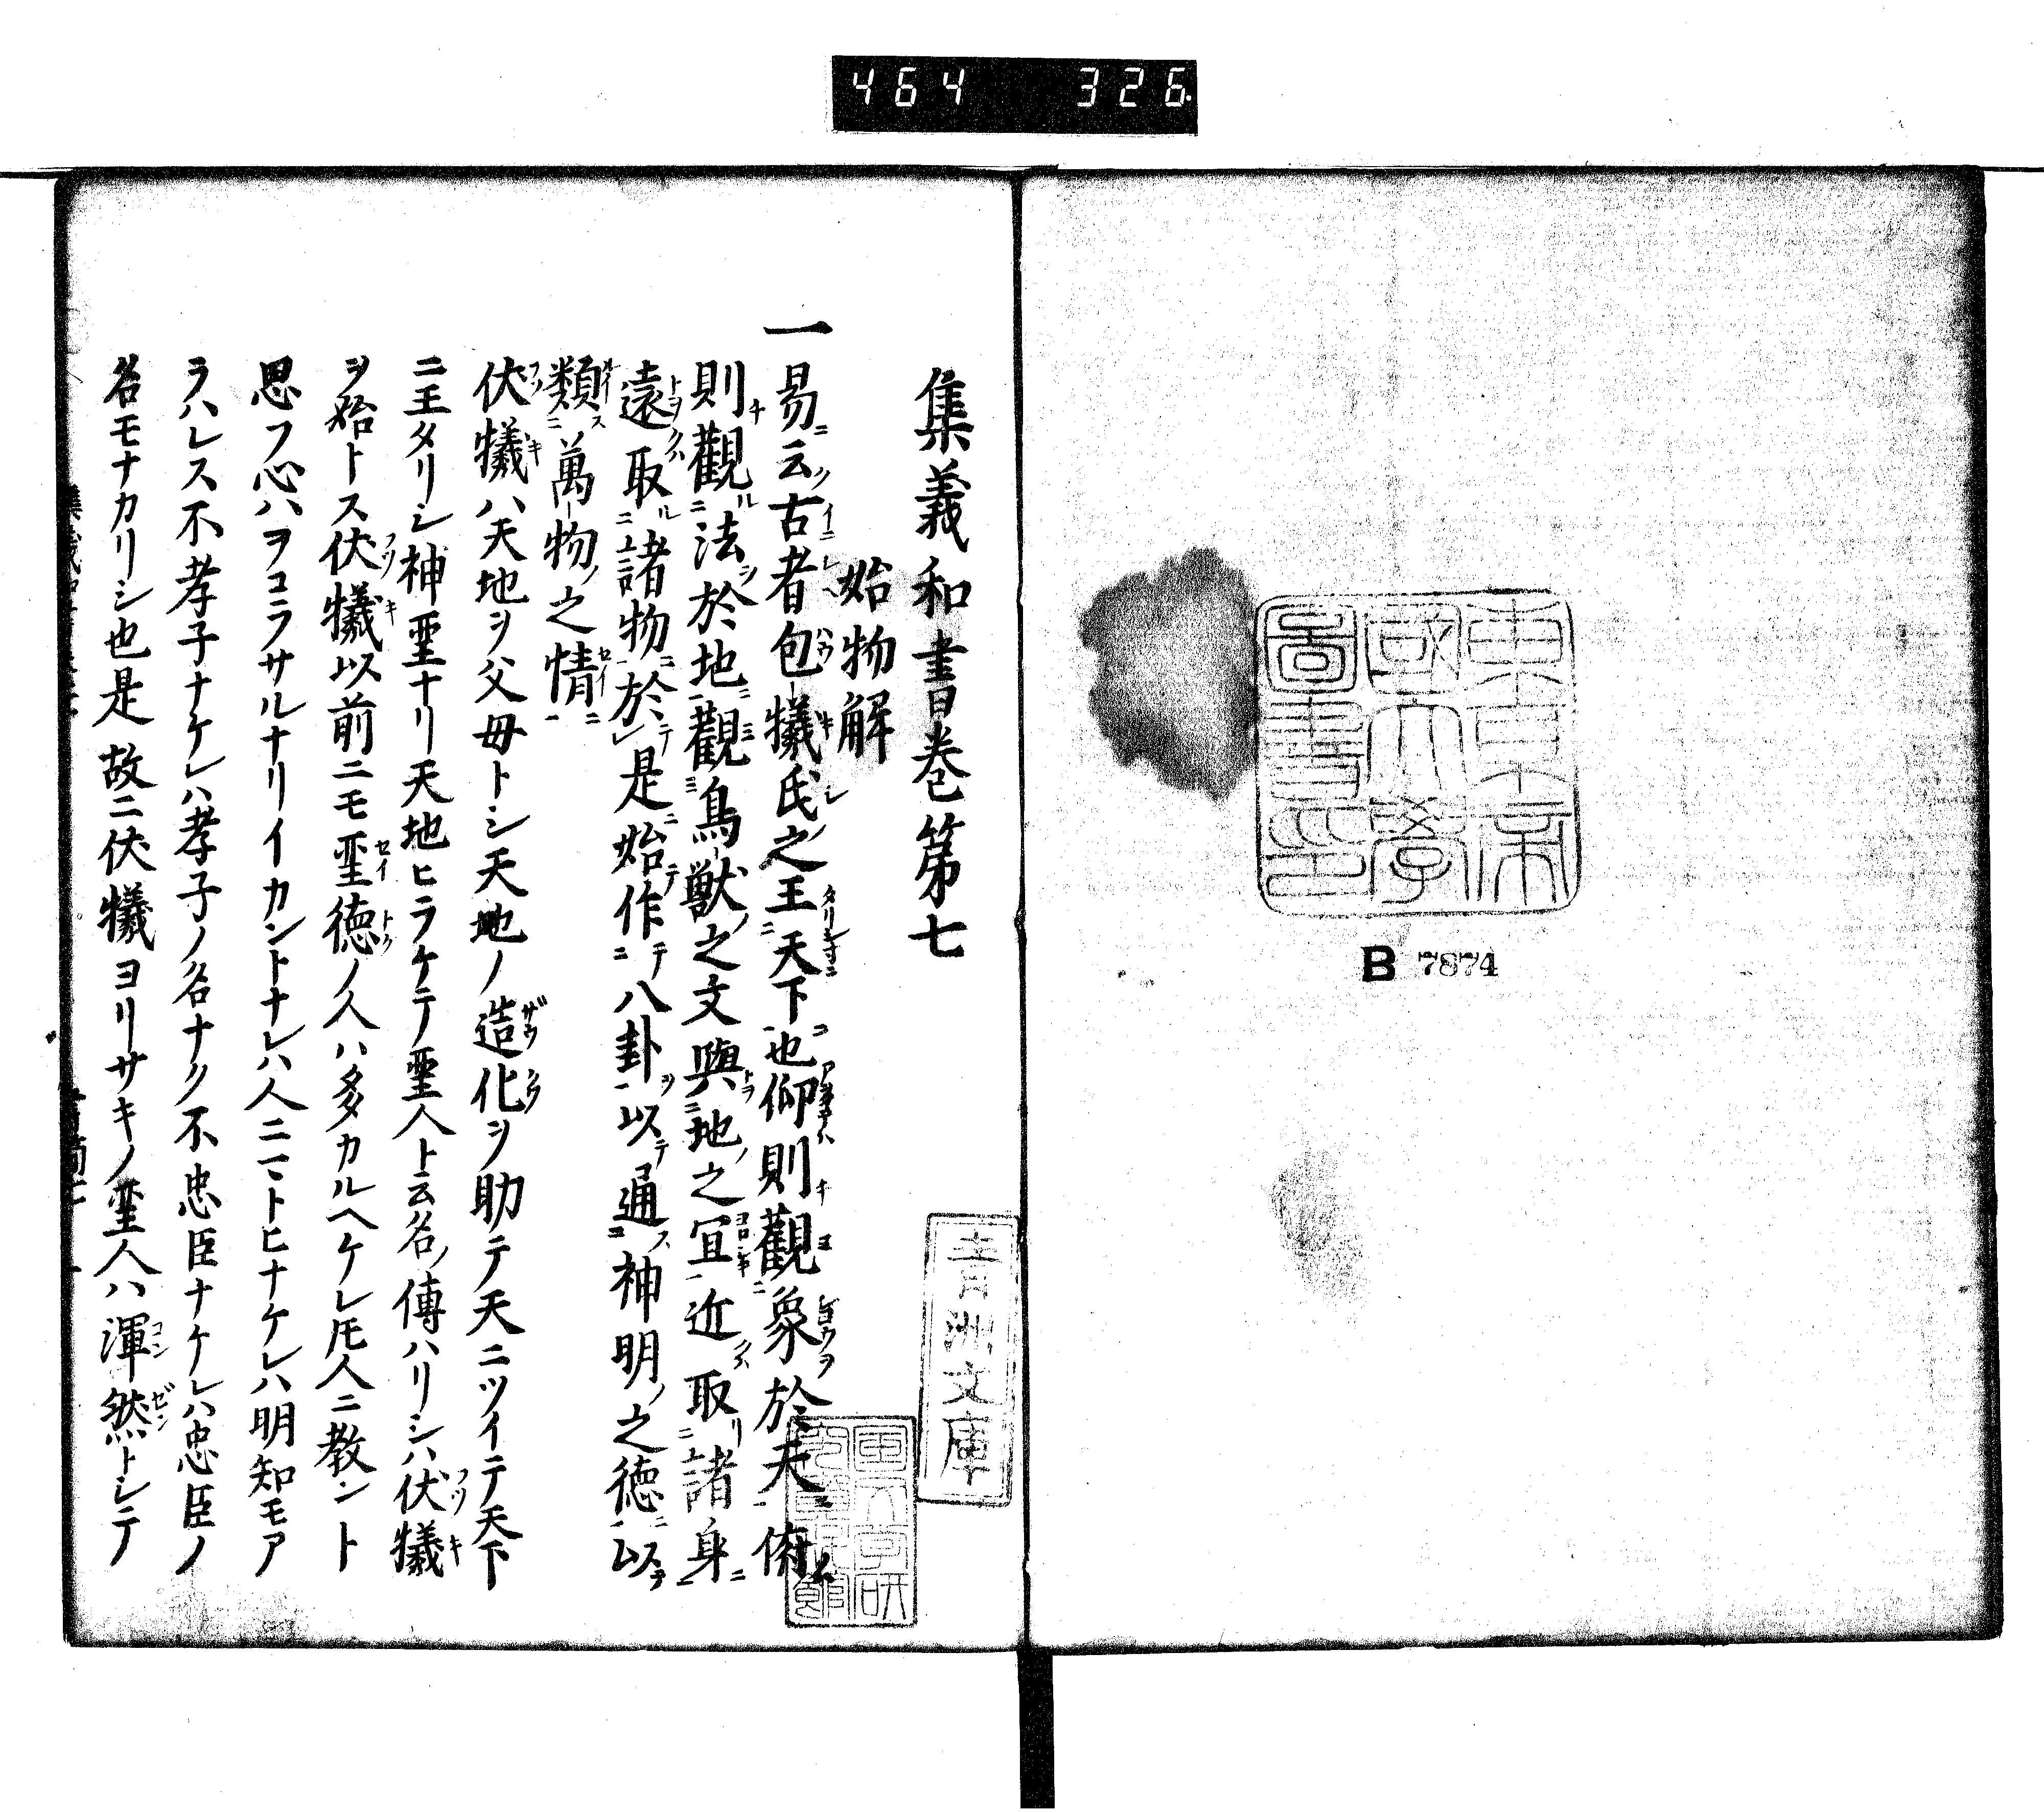 464 326
東京帝
國大學
圖書印
B 7874
集義和書巻第七
始物解
一易云古者包犧氏之王天下也仰則觀象於天俯
則觀法於地觀鳥獸之文與地之宜近取諸身
遠取諸物於是始作八卦以通神明之徳以
類萬物之情
伏犧ハ天地ヲ父母トシ天地ノ造化ヲ助テ天ニツイテ天下
ニ王タリシ神聖ナリ天地ヒラケテ聖人ト云名ノ傳ハリシハ伏犧
ヲ始トス伏犧以前ニモ聖徳ノ人ハ多カルヘケレ𪜈人ニ教ント
思フ心ハヲコラサルナリイカントナレハ人ニマトヒナケレハ明知モア
ラハレス不孝子ナケレハ孝子ノ名ナク不忠臣ナケレハ忠臣ノ
名モナカリシ也是故ニ伏犧ヨリサキノ聖人ハ渾然トシテ
青洲文庫